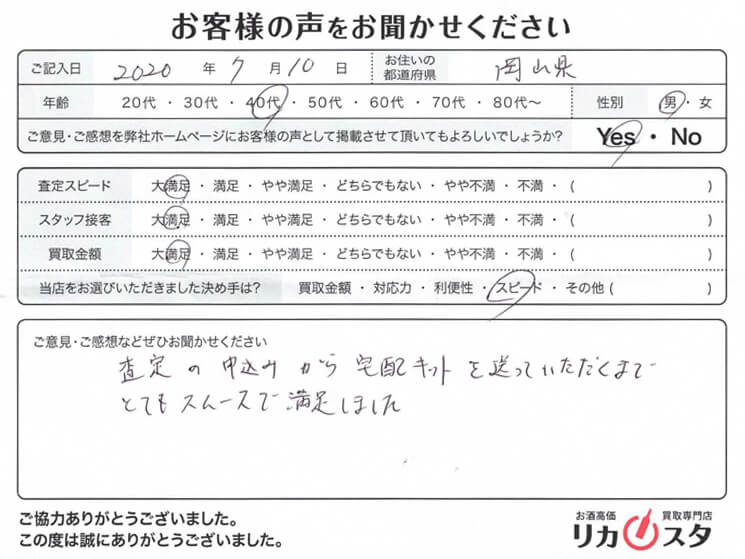 お客様の声をお聞かせください
ご記入日 2020 年 7 月 10 日 お住いの都道府県 岡山県
年齢 20代 ・ 30代 ・ 40代 ・ 50代 ・ 60代 ・ 70代 ・ 80代〜 性別 男 ・ 女
ご意見・ご感想を弊社ホームページにお客様の声として掲載させて頂いてもよろしいでしょうか? Yes ・ No
査定スピード 大満足 ・ 満足 ・ やや満足 ・ どちらでもない ・ やや不満 ・ 不満 ・ ( )
スタッフ接客 大満足 ・ 満足 ・ やや満足 ・ どちらでもない ・ やや不満 ・ 不満 ・ ( )
買取金額 大満足 ・ 満足 ・ やや満足 ・ どちらでもない ・ やや不満 ・ 不満 ・ ( )
当店をお選びいただきました決め手は? 買取金額 ・ 対応力 ・ 利便性 ・ スピード ・ その他 ( )
ご意見・ご感想などぜひお聞かせください
査定の申込みから宅配キットを送っていただくまで
とてもスムーズで満足しました
ご協力ありがとうございました。
この度は誠にありがとうございました。
お酒高価 買取専門店
リカスタ